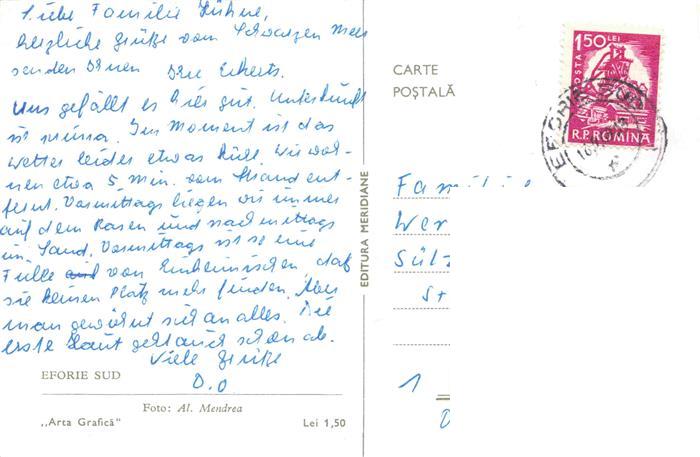 Liebe Familie Kühne,
herzliche Grüße vom Schwarzen Meer
senden Ihnen Ihre Eckerts.
Uns gefällt es hier gut. Unterkunft
ist prima. Im Moment ist das
Wetter leider etwas kühl. Wir woh-
nen etwa 5 Min. vom Strand ent-
fernt. Vormittags liegen wir immer
auf dem Rasen und nachmittags
im Sand. Vormittags ist so eine
Fülle von Einheimischen, daß
sie keinen Platz mehr finden. Aber
man gewöhnt sich an alles. Die
erste Haut geht auch schon ab.
Viele Grüße
D.O
EFORIE SUD
Foto: Al. Mendrea
„Arta Grafică” Lei 1,50
EDITURA MERIDIANE
CARTE
POŞTALĂ
POSTA 1 50 LEI
R.P.ROMINA
EFORIE SUD
Familie
Wer
Sülz
St
1